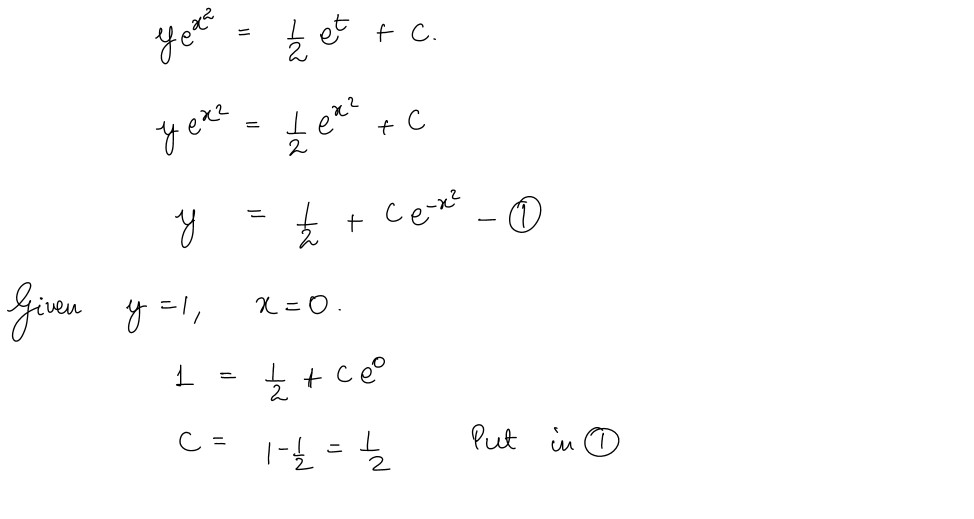 y e^{x^2} = 1/2 e^t + C.
y e^{x^2} = 1/2 e^{x^2} + C
y = 1/2 + C e^{-x^2} - ①
Given y = 1, x = 0.
1 = 1/2 + C e^0
C = 1 - 1/2 = 1/2 Put in ①